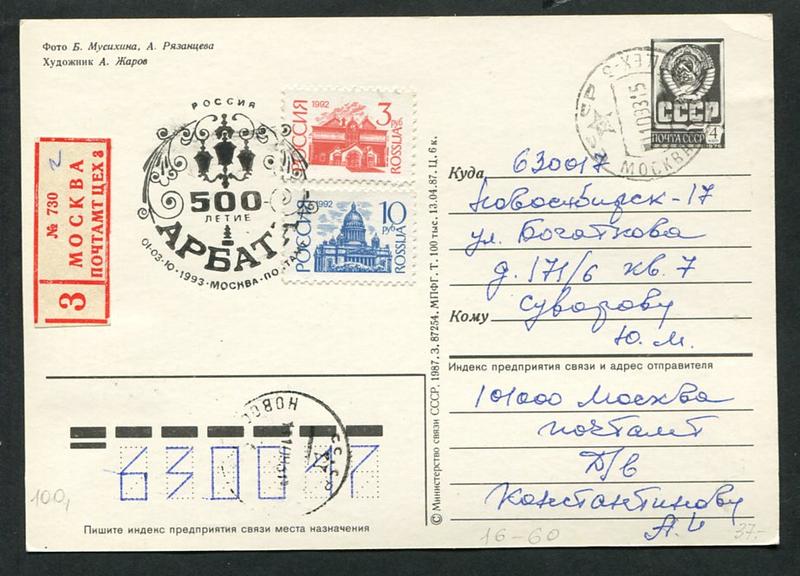 Фото Б. Мусихина, А. Рязанцева
Художник А. Жаров
З
№ 730
МОСКВА
ПОЧТАМТ ЦЕХ 8
РОССИЯ
500
ЛЕТИЕ
АРБАТ
01-03·10·1993·МОСКВА·ПОЧТАМТ
1992
3 руб.
РОССИЯ
ROSSIJA
1992
10
руб.
РОССИЯ
ROSSIJA
СССР
ПОЧТА СССР
4
МОСКВА
СССР
Куда 630017
Новосибирск-17
ул. Богаткова
д. 171/6 кв. 7
Кому Суворову
Ю. М.
Индекс предприятия связи и адрес отправителя
101000 Москва
почтамт
Д/в
Константинову
А. И
© Министерство связи СССР, 1987. З. 87254. МПФГ. Т. 100 тыс. 13.04.87. Ц. 6 к.
НОВОС
СССР
630017
Пишите индекс предприятия связи места назначения
100,
16-60
37.-